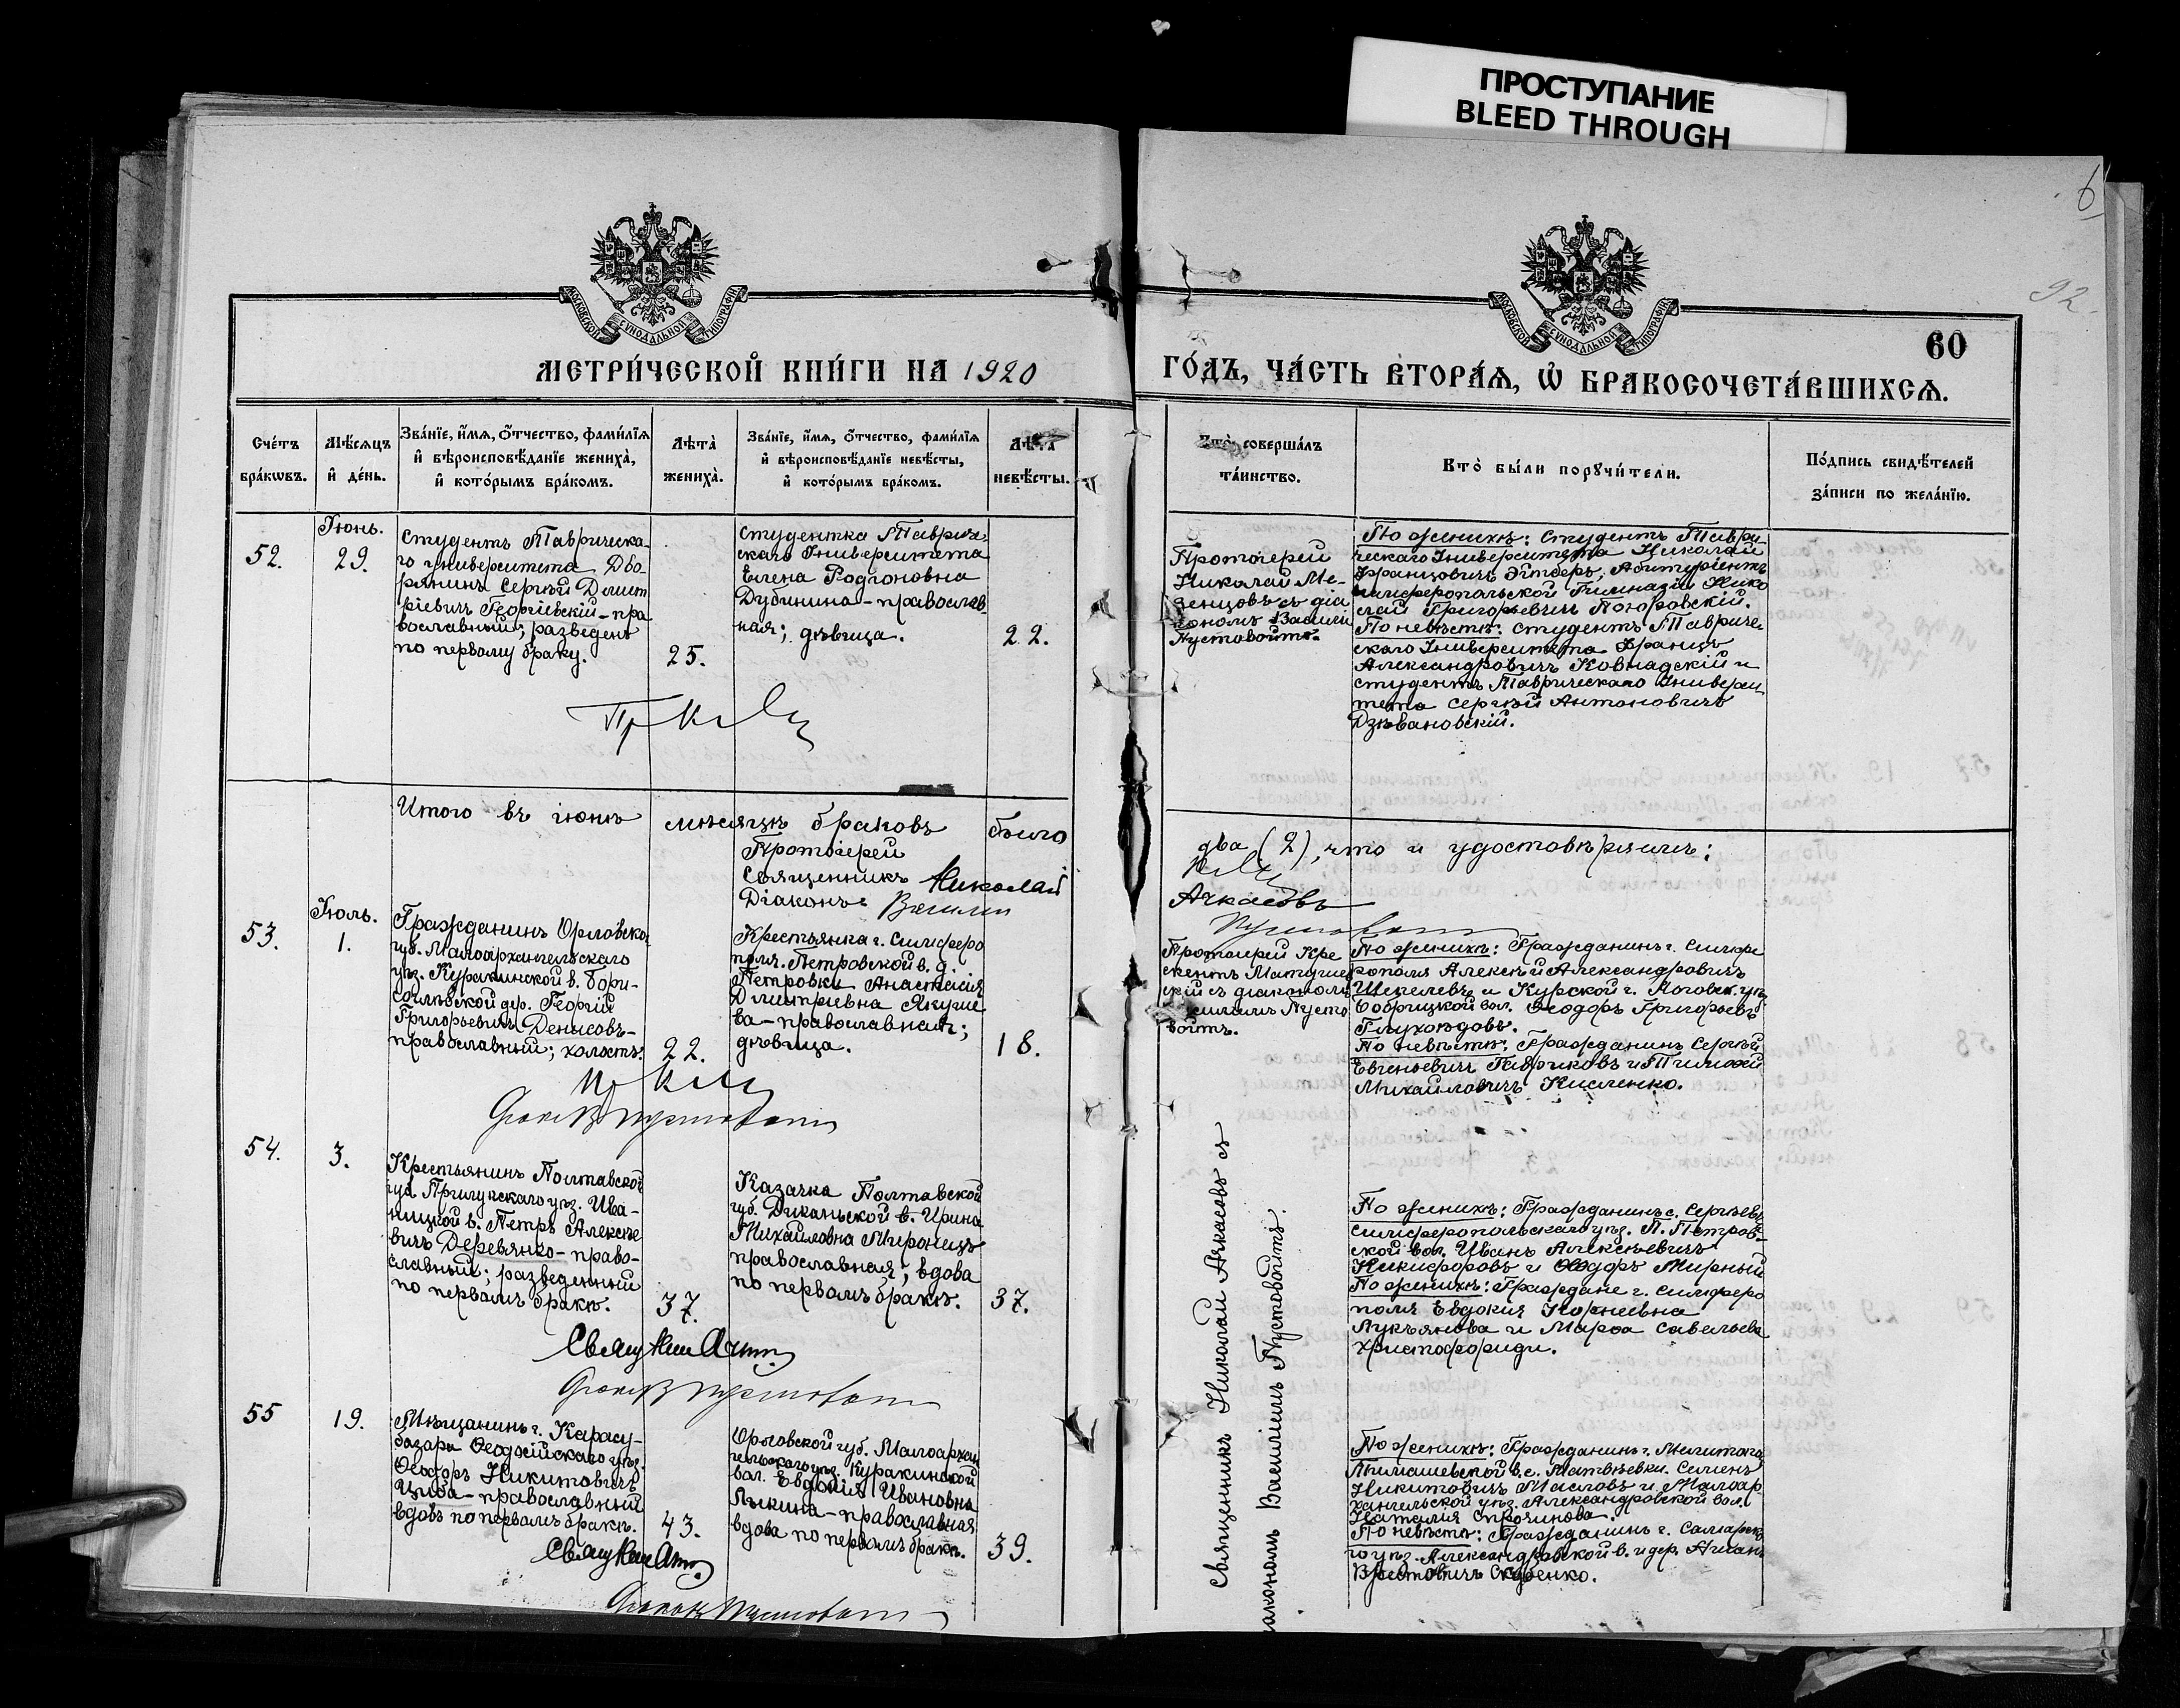 ПРОСТУПАНИЕ
BLEED THROUGH
6
92.
МОСКОВСКОЙ СѴНОДАЛЬНОЙ ТИПОГРАФІИ
МОСКОВСКОЙ СѴНОДАЛЬНОЙ ТИПОГРАФІИ
60
МЕТРИ́ЧЕСКОЙ КНИ́ГИ НА 1920
ГО́ДЪ, ЧА́СТЬ ВТОРА́Ѧ, Ѽ БРАКОСОЧЕТА́ВШИХСѦ.
Сче́тъ
бра́кѡвъ.
Мѣ́сяцъ
и҆ де́нь.
Зва́нїе, и҆́мѧ, о҆́тчество, фами́лїѧ
и҆ вѣроисповѣ́данїе жениха̀,
и҆ кото́рымъ бра́комъ.
Лѣ́та̀
жениха̀.
Зва́нїе, и҆́мѧ, о҆́тчество, фами́лїѧ
и҆ вѣроисповѣ́данїе невѣ́сты,
и҆ кото́рымъ бра́комъ.
Лѣ́та̀
невѣ́сты.
Кто̀ соверша́лъ
та́инство.
Кто̀ бы́ли порꙋчи́тели.
По́дпись свидѣ́телей
за́писи по жела́нїю.
52.
Іюнь.
29.
Студентъ Таврическа-
го университета Дво-
рянинъ Сергѣй Димит
ріевичъ Георгіевскій-пра
вославный; разведенъ
по первому браку.
25.
Студентка Тавриче-
скаго Университета
Елена Родіоновна
Дубинина-православ-
ная; дѣвица.
22.
Протоіерей
Николай Ме-
зенцовъ съ діа
кономъ Василі
Пустовойтъ.
По женихѣ: студентъ Таври-
ческаго Университета Николай
Францовичъ Эйтверъ; Абитуріентъ
Симферопольской Гимназіи Нико
лай Григорьевичъ Погоровскій.
По невѣстѣ: студентъ Тавриче-
скаго Университета Францъ
Александровичъ Ковнадскій и
студентъ Таврическаго Универси
тета Сергѣй Антоновичъ
Дзѣвановскій.
Итого въ іюнѣ мѣсяцѣ браковъ было
два (2), что и удостовѣряемъ:
Протоіерей
Священникъ Николай
Ачкасовъ
Діаконъ Василій
53.
Іюль.
1.
Гражданинъ Орловско
губ. Малоархангельскаго
уѣз. Куракинской в. Бори-
соглѣбской дер. Георгій
Григорьевичъ Денисовъ-
православный; холостъ.
22.
Крестьянка г. Симферо
поля. Петровской в. д.
Петровки Анастасія
Димитріевна Якуше
ва-православная;
дѣвица.
18.
Протоіерей Кре
скентъ Матушев
скій съ діакономъ
Василіемъ Пусто
войтъ.
По женихѣ: Гражданинъ г. Симфе
рополя Алексѣй Александровичъ
Шепелевъ и Курской г. Льговск. уѣз.
Бобрицкой вол. Ѳеодоръ Григорьевъ
Глухоѣдовъ.
По невѣстѣ: Гражданинъ Сергѣй
Евгеньевичъ Гавриковъ и Тимофей
Михайловичъ Кисленко.
54.
3.
Крестьянинъ Полтавской
губ. Прилукскаго уѣз. Ива-
ницкой в. Петръ Алексѣе
вичъ Деревянко-право-
славный; разведенный
по первомъ бракѣ.
37.
Казачка Полтавской
губ. Диканьской в. Ирина
Михайловна Миронецъ
православная; вдова
по первомъ бракѣ.
37.
По женихѣ: Гражданинъ с. Сергѣевк
Симферопольскаго уѣз. П. Петров-
ской вол. Иванъ Алексѣевичъ
Никифоровъ и Ѳеодоръ Мирный
По женихѣ: Граждане г. Симферо
поля Евдокія Корнеевна
Лукьянова и Марѳа Савельева
Христофориди.
Священникъ Николай Ачкасовъ съ
діакономъ Василіемъ Пустовойтъ.
55
19.
Мѣщанинъ г. Карасу-
базара Ѳеодосійскаго уѣз.
Ѳеодоръ Никитовичъ
Цыба-православный
вдовъ по первомъ бракѣ.
43.
Орловской губ. Малоархан
гельскаго уѣз. Куракинской
вол. Евдокія Ивановна
Лыкина-православная
вдова по первомъ бракѣ.
39.
По женихѣ: Гражданинъ г. Мелитопол
Тимашевской в. с. Матвѣевки. Семенъ
Никитовичъ Масловъ и Малоар
хангельской уѣз. Александровской вол.
Наталія Строчинова.
По невѣстѣ: Гражданинъ г. Самарско
го уѣз. Александровской в. и дер.